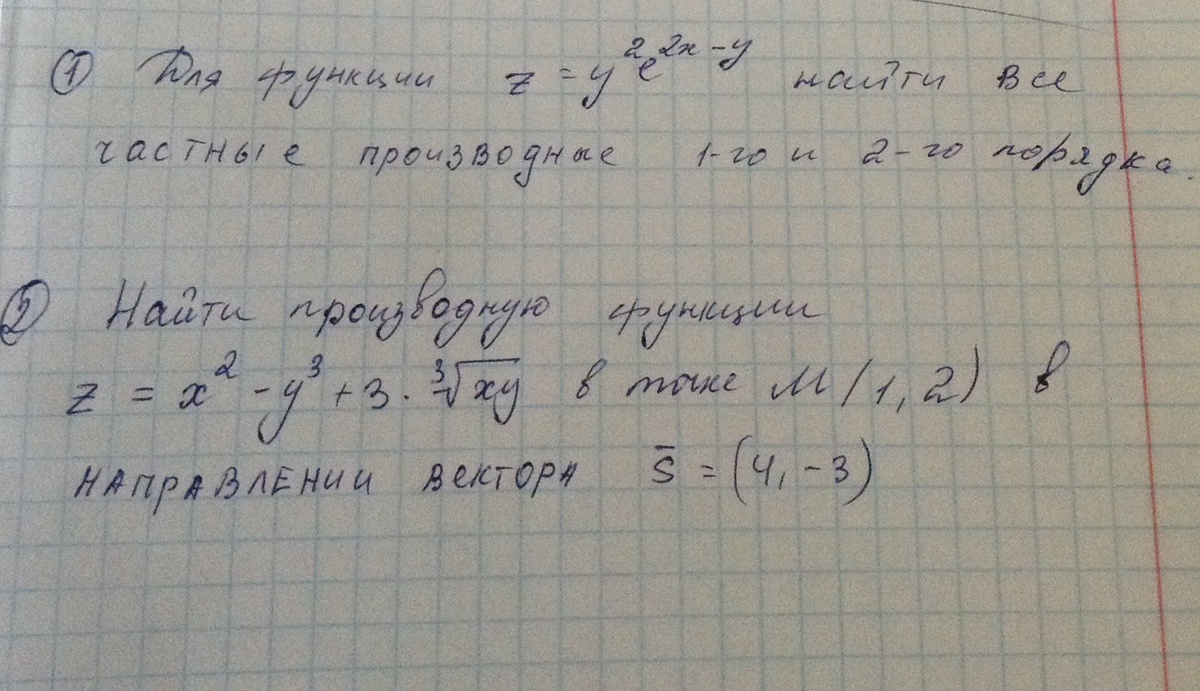 ① Для функции z = y²e²ˣ⁻ʸ найти все
частные производные 1-го и 2-го порядка.
② Найти производную функции
z = x² - y³ + 3 · ³√xy в точке M(1, 2) в
направлении вектора s̄ = (4, -3)